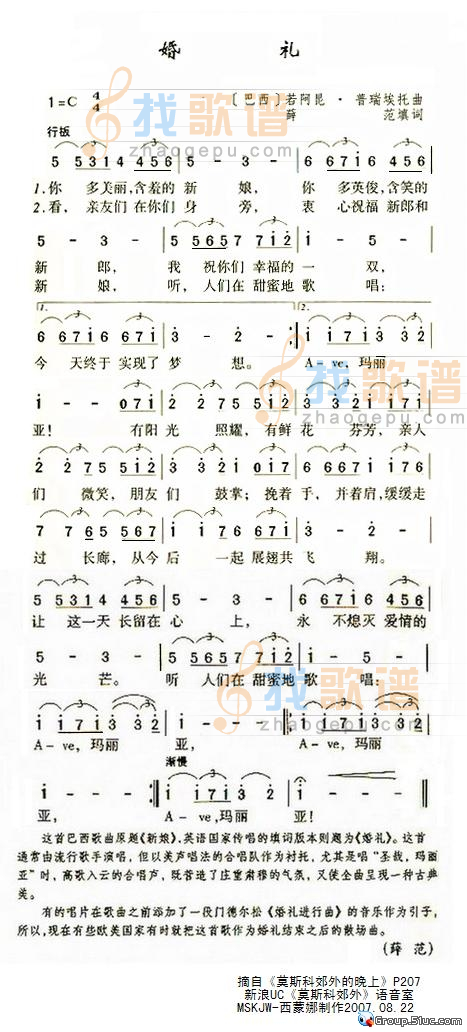 婚 礼
1=C 4/4
〔巴西〕若阿昆·普瑞埃托曲
薛 范填词
行板
找歌谱
zhaogepu.com
5 5 5314 456 5 - 3 - 6 6 671 6 456
1.你 多美丽,含羞的 新 娘, 你 多英俊,含笑的
2.看, 亲友们 在你们 身 旁, 衷 心祝福 新郎和
5 - 3 - 5 5657 712 1 - 5 -
新 郎, 我 祝你们 幸福的 一 双,
新 娘, 听, 人们在 甜蜜地 歌 唱:
1. 2.
6 6671 671 3 - 2 - :1 171 3 32
今 天终于 实现了 梦 想。 A-ve,玛丽
1 - - 071 2 275 512 3 321 171
亚! 有阳光 照耀,有鲜花 芬芳,亲人
2 275 512 3 321 017 6 6671 176
们 微笑,朋友们 鼓掌;挽着 手,并着肩,缓缓走
7 765 567 1 171 171 3 - 2 -
过 长廊,从今后 一起展翅共飞 翔。
5 5314 456 5 - 3 - 6 6716 456
让 这一天长留在 心 上, 永 不熄灭 爱情的
找歌谱
zhaogepu.com
5 - 3 - 5 5657 712 1 - 5 -
光 芒。 听 人们在 甜蜜地 歌 唱:
1 171 3 32 1 - - - 1 171 3 32
A-ve,玛丽 亚, A-ve,玛丽
渐慢
1 - - - 1 171 3 2 1 - - -
亚, A-ve,玛丽 亚!
这首巴西歌曲原题《新娘》,英语国家传唱的填词版本则题为《婚礼》。这首
通常由流行歌手演唱,但以美声唱法的合唱队作为衬托,尤其是唱“圣哉,玛丽
亚”时,高歌入云的合唱声,既营造了庄重肃穆的气氛,又使全曲呈现一种古典
美。
有的唱片在歌曲之前添加了一段门德尔松《婚礼进行曲》的音乐作为引子,
所以,现在有些欧美国家有时就把这首歌作为婚礼结束之后的散场曲。
(薛 范)
摘自《莫斯科郊外的晚上》P207
新浪UC《莫斯科郊外》语音室
MSKJW-西蒙娜制作2007.08.22
Group.51uc.com